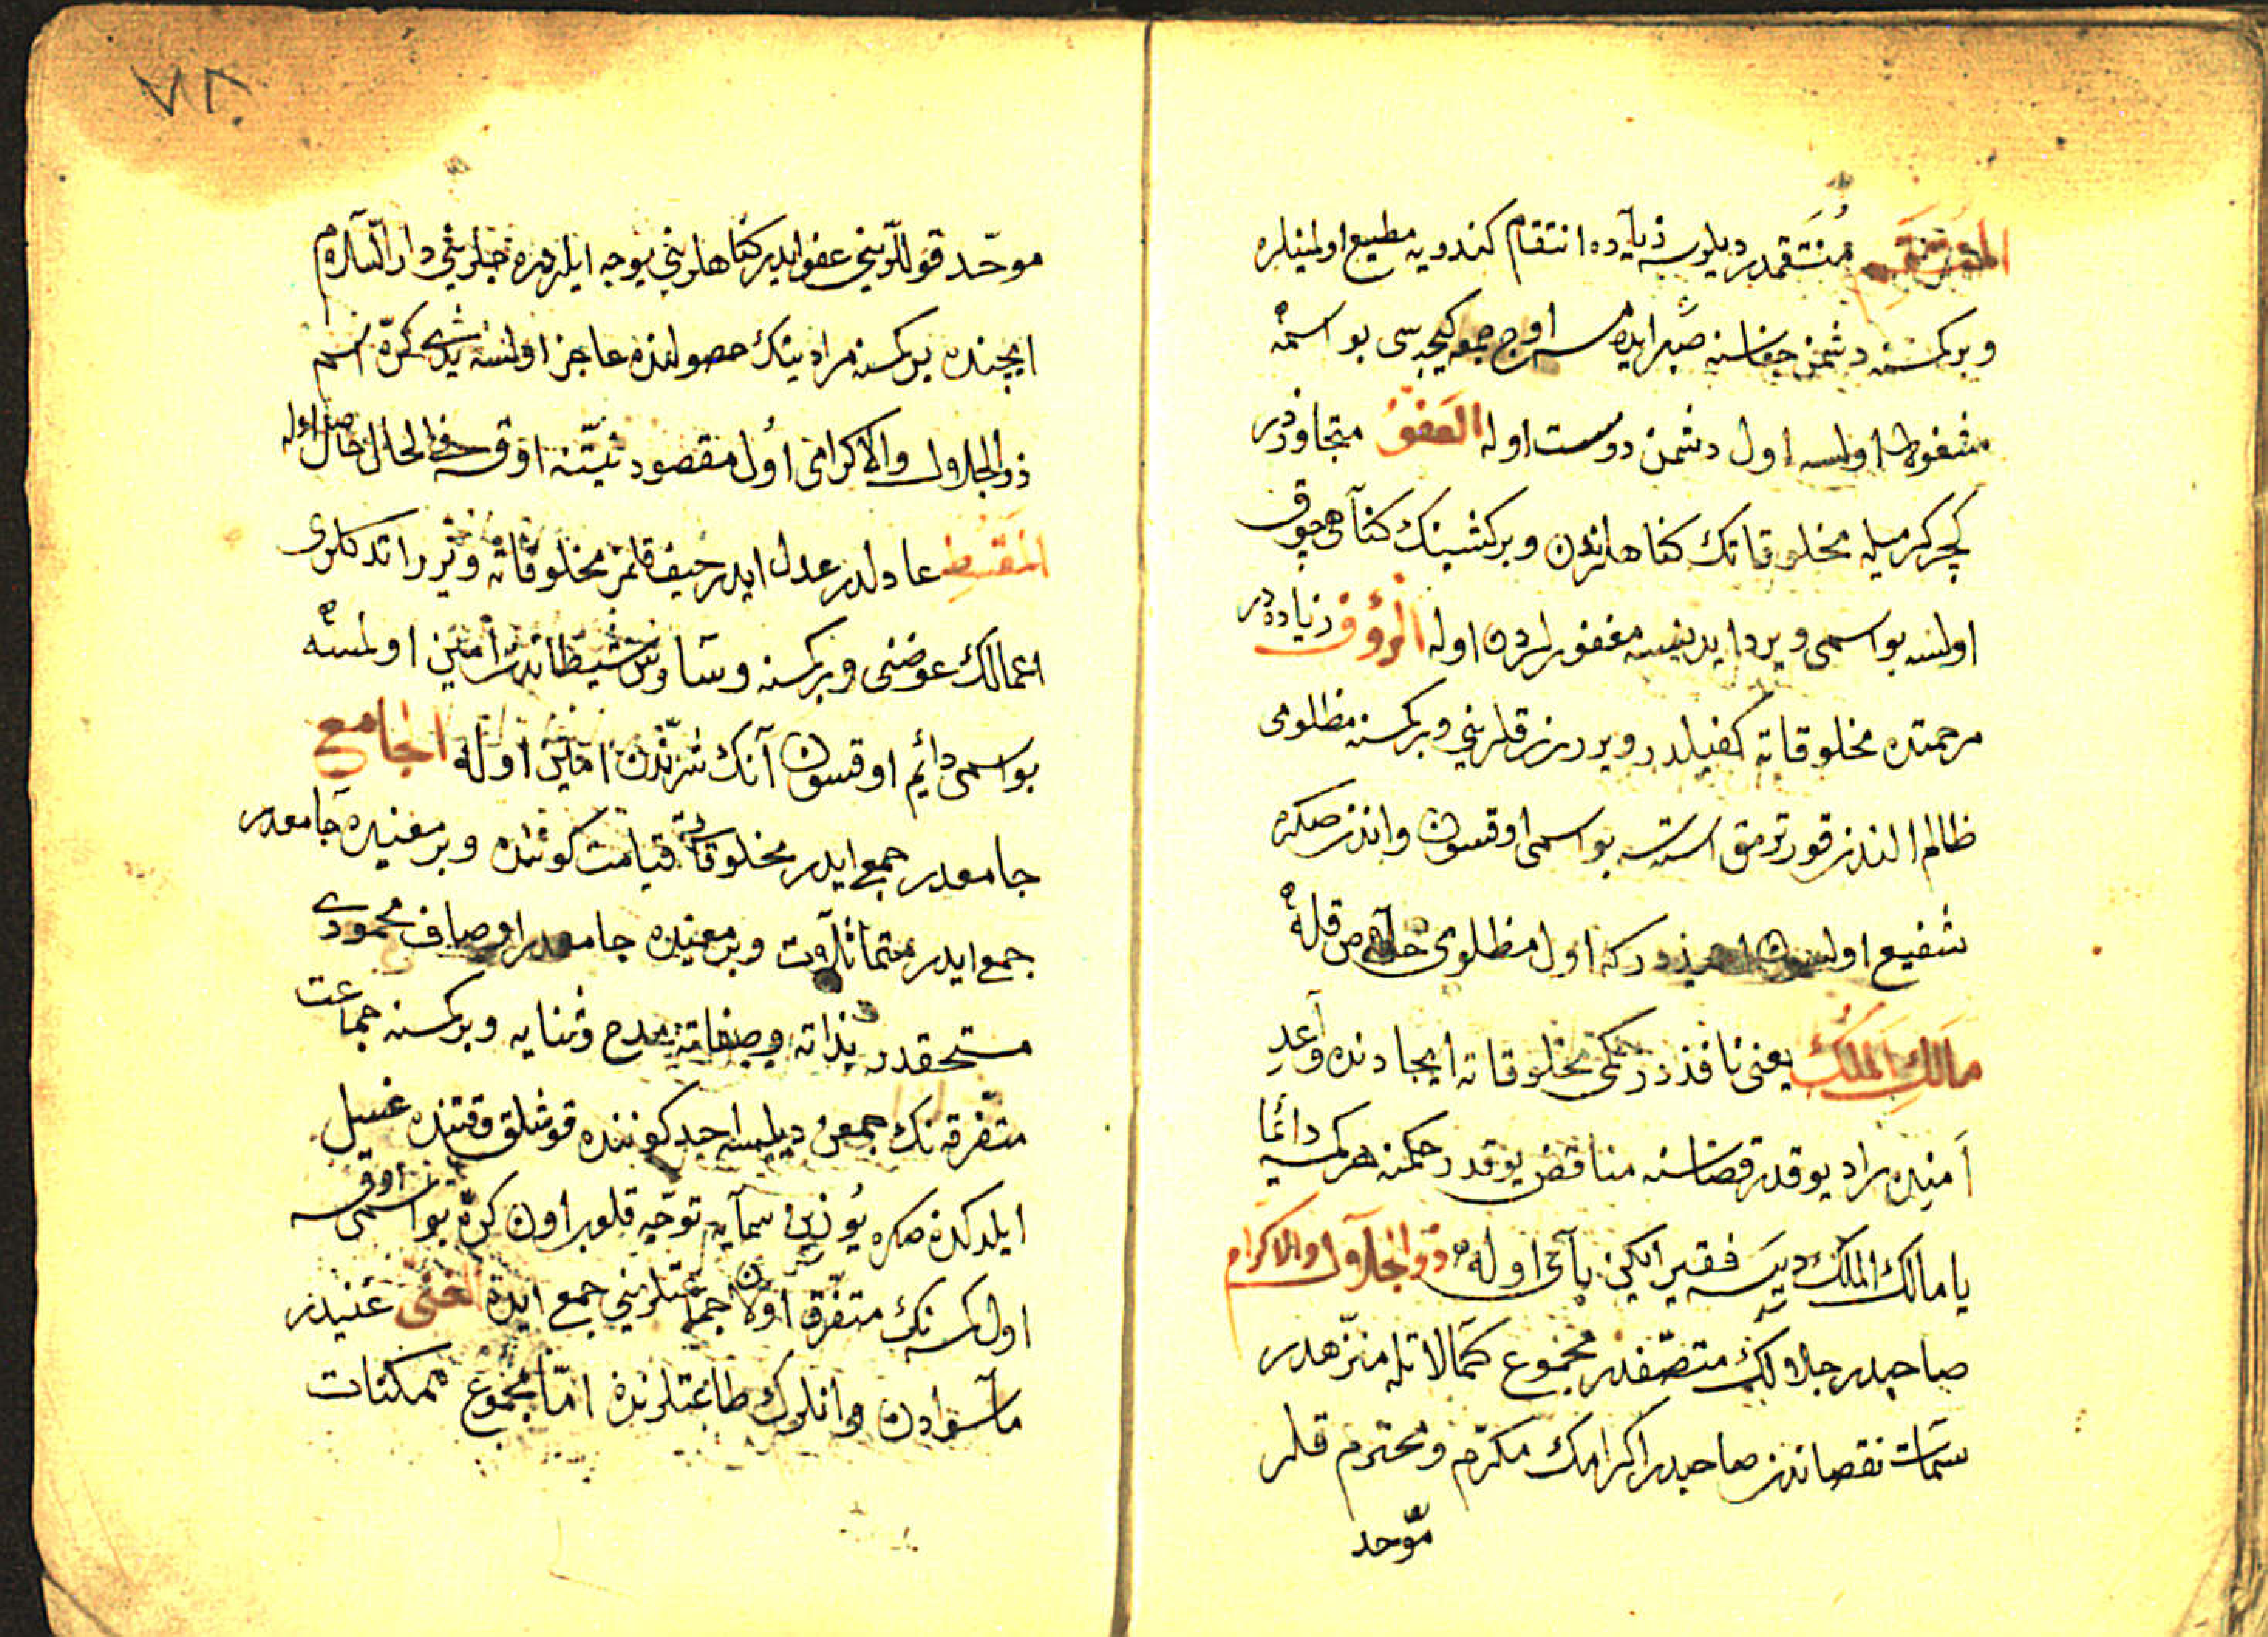 المنتقم منتقمدر ديلرسه زياده انتقام كندويه مطيع اولمينلره
وبر كمسنه دشمن جفاسنه صبر ايده مسه اوچ جمعه كيجه سى بو اسمه
مشغول اولسه اول دشمن دوست اوله العفوّ متجاوزدر
كچر كرميله مخلوقاتك كناهلرندن وبر كشينك كناهى چوق
اولسه بو اسمى ويرد ايدينسه مغفورلردن اوله الرؤف زياده در
مرحمتده مخلوقاته كفيلدر ويرر رزقلرينى وبر كمسنه مظلومى
ظالم الندن قورتومق استسه بو اسمى اوقسون واندن صكره
شفيع اولسون در كه اول مظلومى خلاص قله
مالك الملك يعنى نافذدر حكمى مخلوقاته ايجادنده واعد
امنده راد يوقدر قضاسنه مناقض يوقدر حكمنه هر كمسه دائما
يا مالك الملك ديسه فقير ايكن باى اوله ذو الجلال والاكرام
صاحبدر جلالك متصّفدر مجموع كمالاتله منزّهدر
سمات نقصاندن صاحبدر اكرامك مكرّم ومحترم قلر
موّحد
موحّد قوللرينى عفو ايدر كناهلرينى يوجه ايلر درجه لرينى دار السّلام
ايچنده بر كمسنه مرادينك حصولنده عاجز اولسه يدى كرّه اسم
ذو الجلال والاكرامى اول مقصود نيّتنه اوقسه فى الحال حاصل اوله
المقسط عادلدر عدل ايدر حيف قلمز مخلوقاته ويرر اتدكلرى
اعمالك عوضنى وبر كمسنه وساوس شيطاندن امين اولمسه
بو اسمى دائم اوقسون آنك شرّندن امين اوله الجامع
جامعدر جمع ايدر مخلوقاتى قيامت كوننده وبر معنيده جامعدر
جمع ايدر متماثلات وبر معنيده جامعدر اوصاف محمودى
مستحقدر بذاته وصفاته مدح وثنايه وبر كمسنه جماعت
متفّرقه نك جمعن ديلسه احد كوننده قوشلق وقتنده غسيل
ايلدكدن صكره يوزين سمايه توجّيه قلوبر اون كرّه بو اسمى اوقسه
اول كمسنه نك متفّرق اولان جماعتلرينى جمع ايده الغنى غنيدر
ماسوادن وانلرك طاعتلرندن امّا مجموع ممكنات